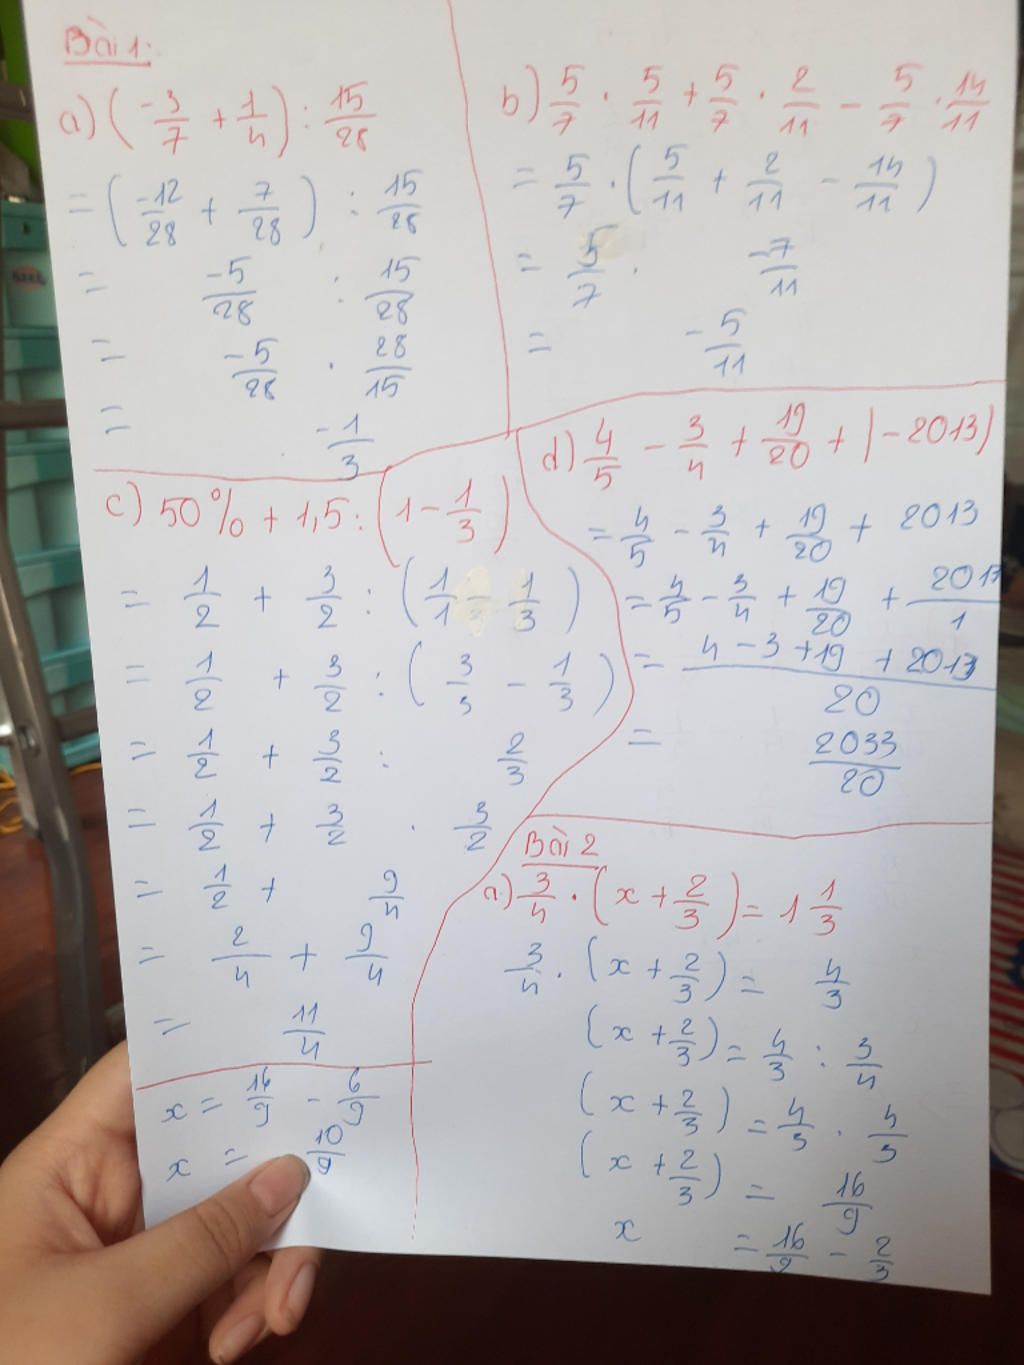 Bài 1:
a) (-3/7 + 1/4) : 15/28
= (-12/28 + 7/28) : 15/28
= -5/28 : 15/28
= -5/28 . 28/15
= -1/3
b) 5/7 . 5/11 + 5/7 . 2/11 - 5/7 . 14/11
= 5/7 . (5/11 + 2/11 - 14/11)
= 5/7 . -7/11
= -5/11
c) 50% + 1,5 : (1 - 1/3)
= 1/2 + 3/2 : (1/1 - 1/3)
= 1/2 + 3/2 : (3/3 - 1/3)
= 1/2 + 3/2 : 2/3
= 1/2 + 3/2 . 3/2
= 1/2 + 9/4
= 2/4 + 9/4
= 11/4
d) 4/5 - 3/4 + 19/20 + |-2013|
= 4/5 - 3/4 + 19/20 + 2013
= 4/5 - 3/4 + 19/20 + 2013/1
= 4 - 3 + 19 + 2013/20
= 2033/20
Bài 2
a) 3/4 . (x + 2/3) = 1 1/3
3/4 . (x + 2/3) = 4/3
(x + 2/3) = 4/3 : 3/4
(x + 2/3) = 4/3 . 4/3
(x + 2/3) = 16/9
x = 16/9 - 2/3
x = 16/9 - 6/9
x = 10/9